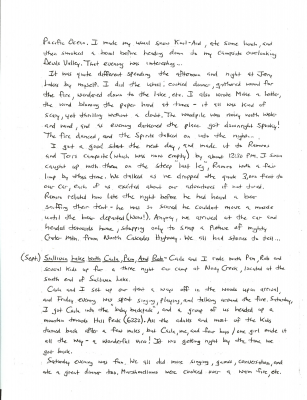 Pacific Ocean. I made my usual snow Kool-Aid, ate some lunch, and
then smoked a bowl before heading down to my campsite overlooking
Devils Valley. That evening was interesting...
It was quite different spending the afternoon and night at Jerry
Lakes by myself. I did the usual: cooked dinner, gathered wood for
the fire, wandered down to the lake, etc. I also wrote a letter,
the wind blowing the paper hard at times - it all was kind of
scary, yet thrilling without a doubt. The woodpile was noisy with
and wind, and as evening darkened the place got downright spooky!
The fire danced, and the spirits talked on into the night...
I got a good start the next day, and made it to Ramon
and Tom's campsite (which was now empty) by about 12:30 PM. I soon
caught up with them on the steep last leg, Ramon with a fair
limp by other time. We talked as we dropped the quick 3,000 from to
our car, each of us excited about our adventures it out turned.
Ramon related how late the night before he had heard a bear
sniffing their tent - he was so scared he couldn't move a muscle
until the bear departed (Wow!). Anyway, we arrived at the car and
headed towards home, stopping only to snap a picture of mighty
from North Cascades Highway. We all had stories to tell...
(Sept) Sullivan Lake with Carla, Pam, And Rob - Carla and I rode with Pam, Rob and
several kids up for a three night car camp at Noisy Creek, located at the
south end of Sullivan Lake.
Carla and I set up our tent a ways off in the woods upon arrival,
and Friday evening was spent singing, playing, and talking around the fire. Saturday,
I got Carla into the "baby backpack", and a group of us headed up a
mountain trail to Hall Peak (6323). All the adults and most of the kids
turned back after a few miles, but Carla, me, and four boys / one girl made it
all the way - a wonderful view! It was getting night by the time we
got back.
Saturday evening was fun. We all did more singing, games, conversation, and
ate a great dinner too. Marshmallows were cooked over a warm fire, etc.